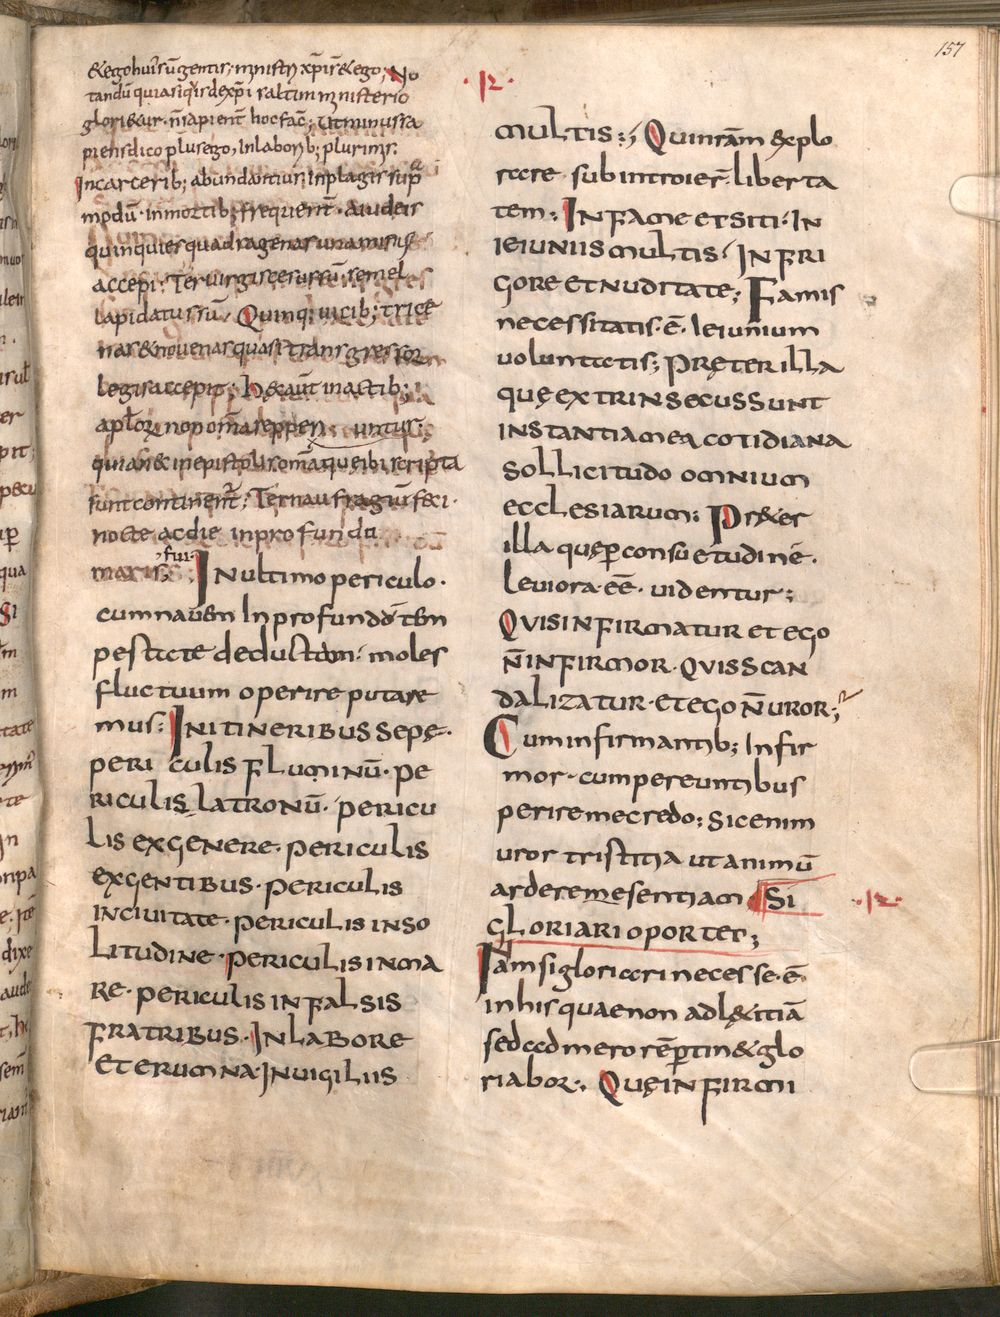 157
&ego huius sū gentis; ministri xp̄i s̄ & ego; No
tandū quia siquis dexp̄i saltim ministerio
glori&ur. n̄ sapient̄ hoc fac̄; Ut minus sa
piens dico plus ego, In laborib; plurimis.
Incarcerib; abundantius, Inplagis sup̄
modū. inmortib; frequent̄. A iudeis
quinquies quadragenas una minus
accepi; Ter uirgis cesus sū. semel
lapidatus sū; Quinq; uicib; trice
nas & nouenas quasi transgressor
legis accepit; h& aūt in actib;
apl̄orū non om̄a repperi untur;
quia n& in epistolis om̄a que sibi scripta
sunt continent̄; Ter naufragiū feci.
nocte ac die in profundu
maris fui; In ultimo periculo.
cum nauem In profundū tem
pestate deductam. moles
fluctuum operire putare
mus; In itineribus sepę.
peri culis fluminū. pe
riculis latronū. pericu
lis ex genere. periculis
ex gentibus. periculis
in ciuitate. periculis in so
litudine. periculis in ma
re. periculis in falsis
fratribus. In labore
et erumna. In uigiliis
.R.
multis; Qui n̄ram explo
rare subintroier̄. liberta
tem; In fame et siti. In
ieiuniis multis. In fri
gore et nuditate; Famis
necessitatis. ē. Ieiunium
uoluntatis; Pręter illa
quę extrinsecus sunt
instantia mea cotidiana
sollicitudo omnium
ecclesiarum; Pr&er
illa quę p̱ consuetudinē.
leuiora. ēē. uidentur;
Quis infirmatur et ego
n̄ infirmor. quis scan
dalizatur. et ego n̄ uror;
Cum infirmantib; Infir
mor. cum pereuntibus
perire me credo; Sic enim
uror tristitia ut animū
ardere me sentiam. Si
.R.
gloriari oportet;
Iam si gloriari necesse. ē.
in his quae non ad l&itiā
sed ad merorē p̱tin& glo
riabor; Quę infirmi